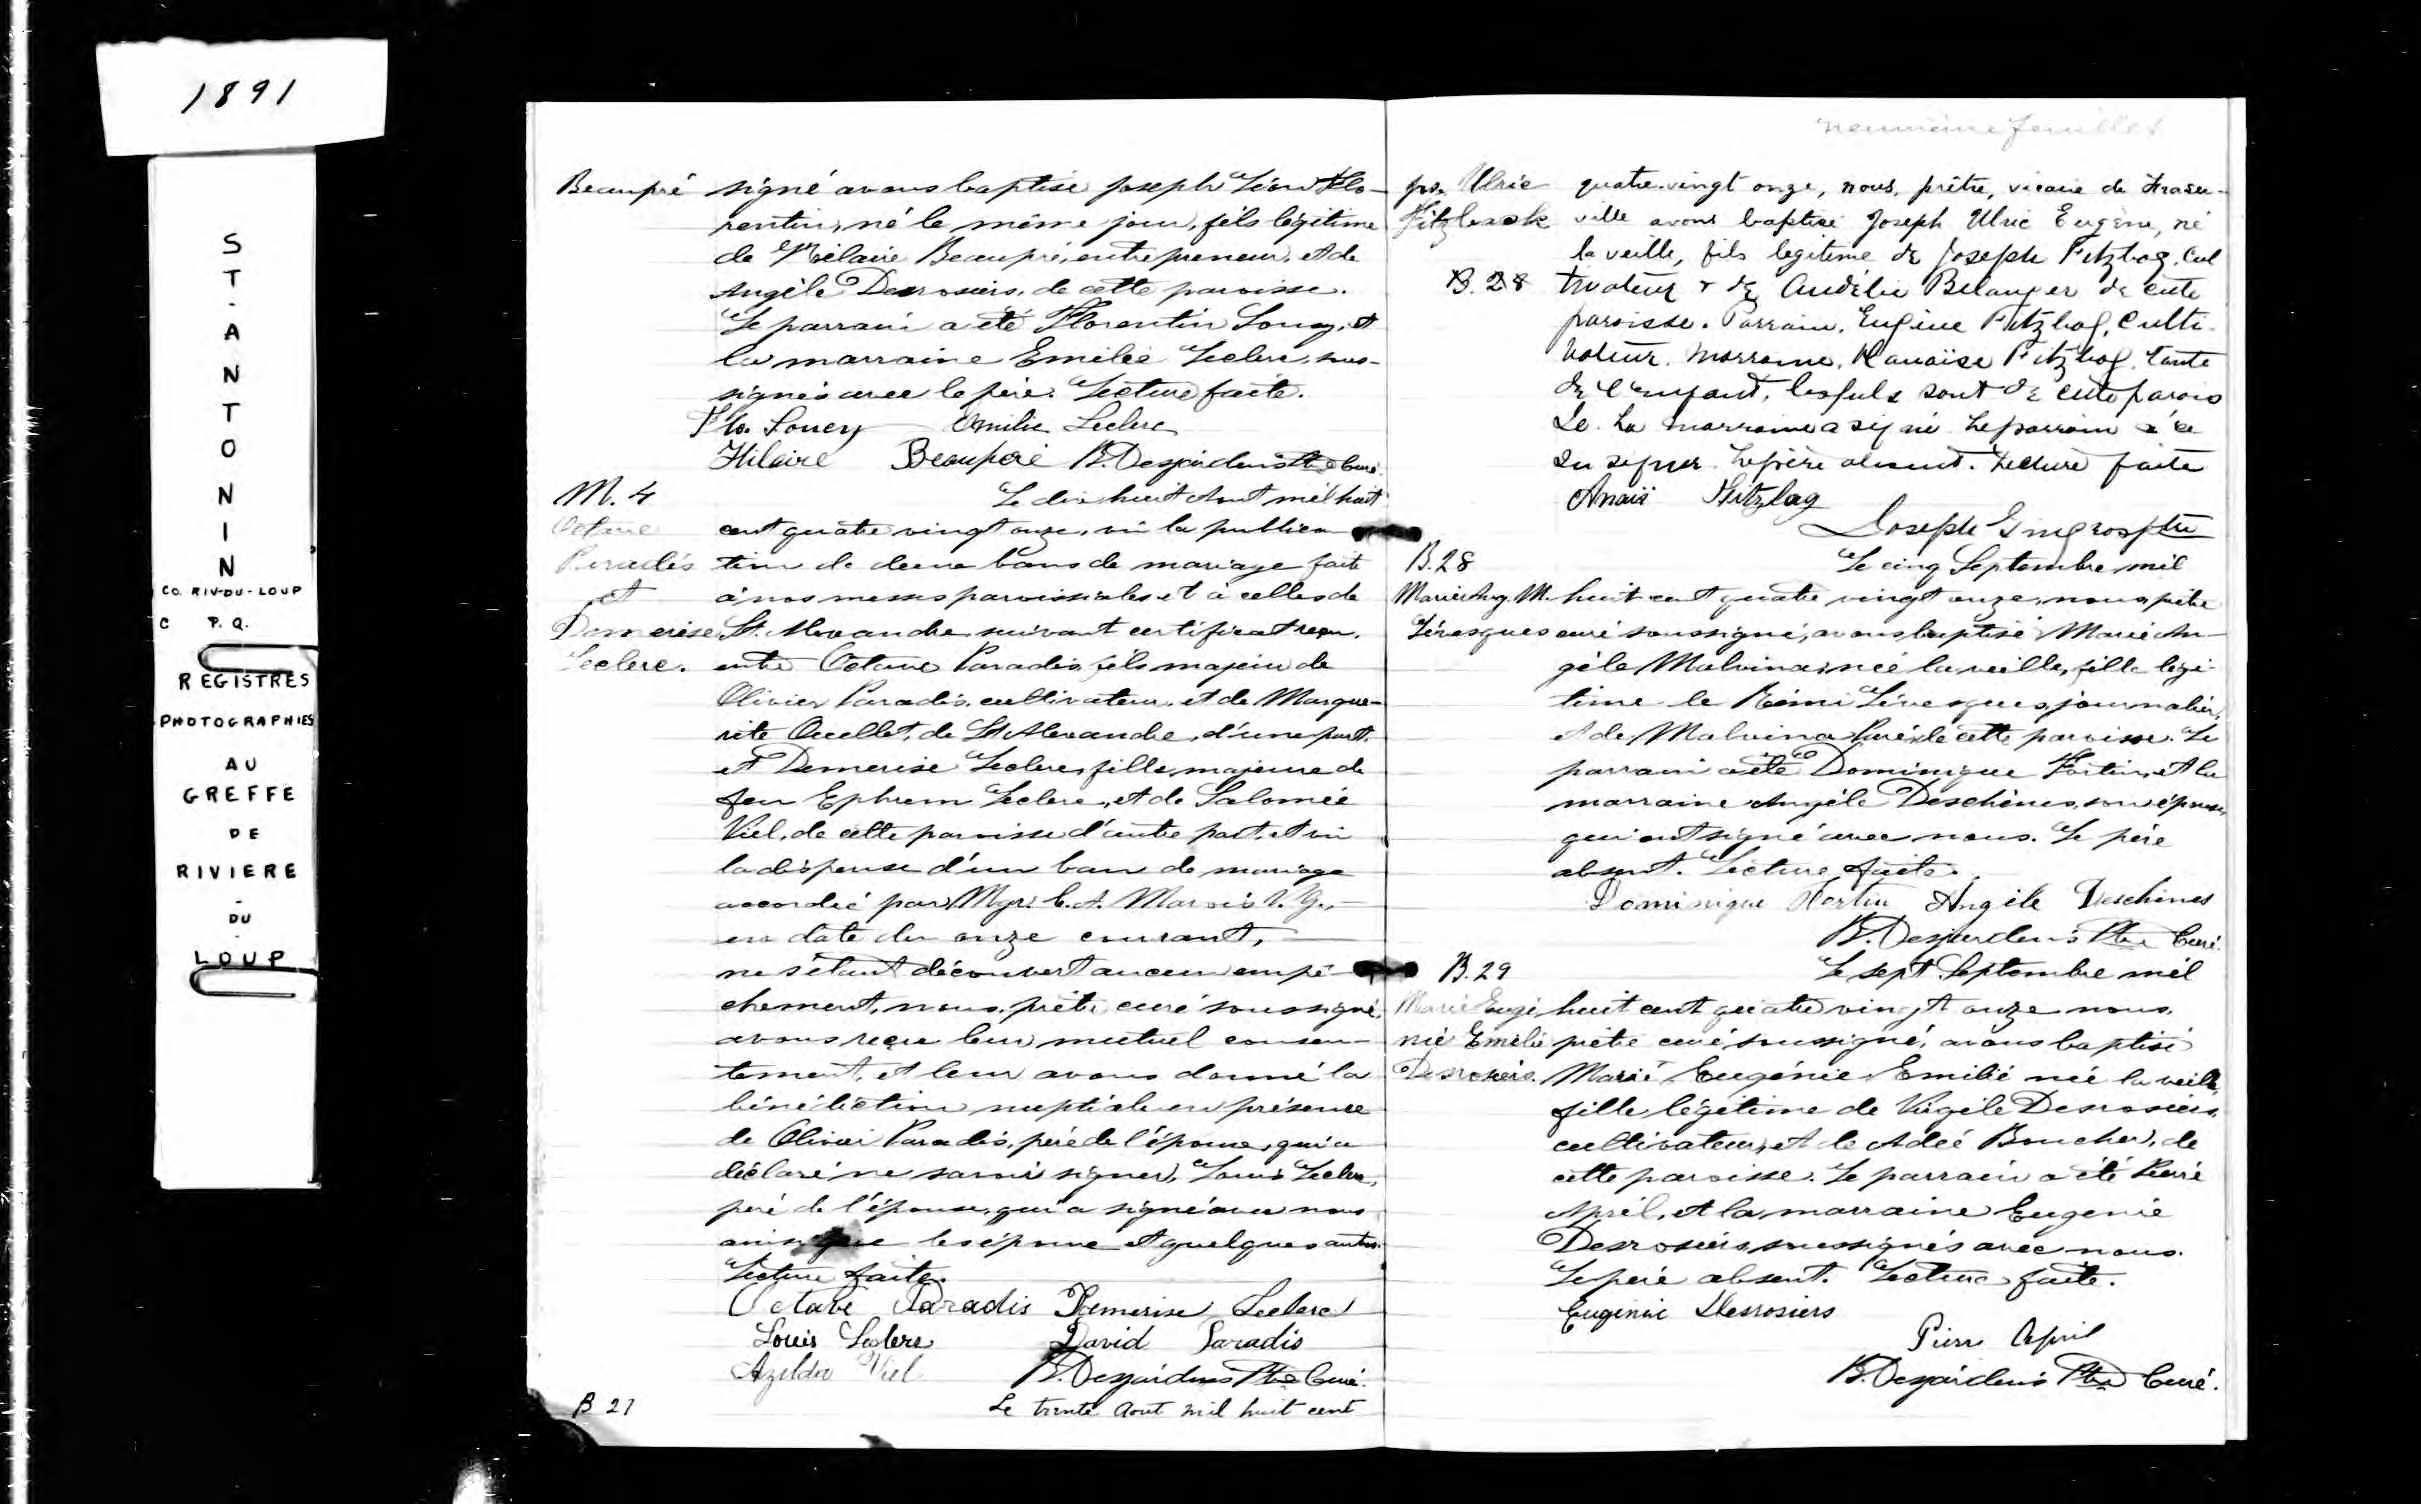 1891
S
T
.
A
N
T
O
N
I
N
CO. RIV-DU-LOUP
C P.Q.
REGISTRES
PHOTOGRAPHIES
AU
GREFFE
DE
RIVIERE
-
DU
-
LOUP
Beaupré signé avons baptisé Joseph Léon Flo-
rentin, né le même jour, fils légitime
de Hilaire Beaupré, entrepreneur, et de
Angèle Desrosiers, de cette paroisse.
Le parrain a été Florentin Soucy, et
la marraine Emélie Leclerc, sous-
signés avec le père. Lecture faite.
Flo. Soucy Emilie Leclerc
Hilaire Beaupré B. Desjardins Ptre Curé.
M. 4 Le dix huit Aout mil huit
Octave cent quatre vingt onze, vu la publica
Paradis tion de deux bans de mariage faite
et à nos messes paroissiales et à celles de
Demerise St. Alexandre suivant certificat reçu,
Leclerc. entre Octave Paradis, fils majeur de
Olivier Paradis, cultivateur, et de Margue-
rite Ouellet, de St Alexandre, d'une part,
et Demerise Leclerc, fille majeure de
feu Ephrem Leclerc, et de Salomée
Viel, de cette paroisse d'autre part, et vu
la dispense d'un ban de mariage
accordée par Mgr. C. A. Marois V. G.,
en date du onze courant,
ne s'étant découvert aucun empê-
chement, nous, prêtre curé soussigné,
avons reçu leur mutuel consen-
tement, et leur avons donné la
bénédiction nuptiale en présence
de Olivier Paradis, père de l'époux, qui a
déclaré ne savoir signer, Louis Leclerc,
père de l'épouse, qui a signé avec nous
ainsi que les époux et quelques autres.
Lecture faite.
Octave Paradis Demerise Leclerc
Louis Leclerc David Paradis
Azelda Viel B. Desjardins Ptre Curé.
B 27 Le trente Aout mil huit cent
neuvième feuillet
jos. Ulric quatre-vingt onze, nous, prêtre, vicaire de Fraser-
Fitzback ville avons baptisé Joseph Ulric Eugène, né
la veille, fils legitime de Joseph Fitzbag, Cul
B. 28 tivateur & de Audélie Belanger de cette
paroisse. Parrain, Eugène Fitzbag, Culti-
vateur. Marraine, Fitzbag, tante
de l'enfant, lesquels sont de cette parois
se. La marraine a signé. Le parrain n'a
su signer. Le père absent. Lecture faite
Anaïs Fitzbag
Joseph Gingras ptre
B. 28 Le cinq Septembre mil
Marie Ang. M. huit cent quatre vingt onze, nous, prêtre
Lévesques curé soussigné, avons baptisé Marie An-
gèle Malvina, née la veille, fille légi-
time de Rémi Lévesques, journalier,
et de Malvina Paré, de cette paroisse. Le
parrain a été Dominique Fortin, et la
marraine Angèle Deschènes, son épouse,
qui ont signé avec nous. Le père
absent. Lecture faite.
Dominique Fortin Angèle Deschènes
B. Desjardins Ptre Curé.
B. 29 Le sept Septembre mil
Marie Eugé huit cent quatre vingt onze nous,
nie Emélie prêtre curé soussigné, avons baptisé
Desrosiers. Marie Eugénie Emilie née la veille,
fille légitime de Virgile Desrosiers,
cultivateur, et de Adée Boucher, de
cette paroisse. Le parrain a été Pierre
April, et la marraine Eugénie
Desrosiers, soussignés avec nous.
Le père absent. Lecture faite.
Eugénie Desrosiers
Pierre April
B. Desjardins Ptre Curé.